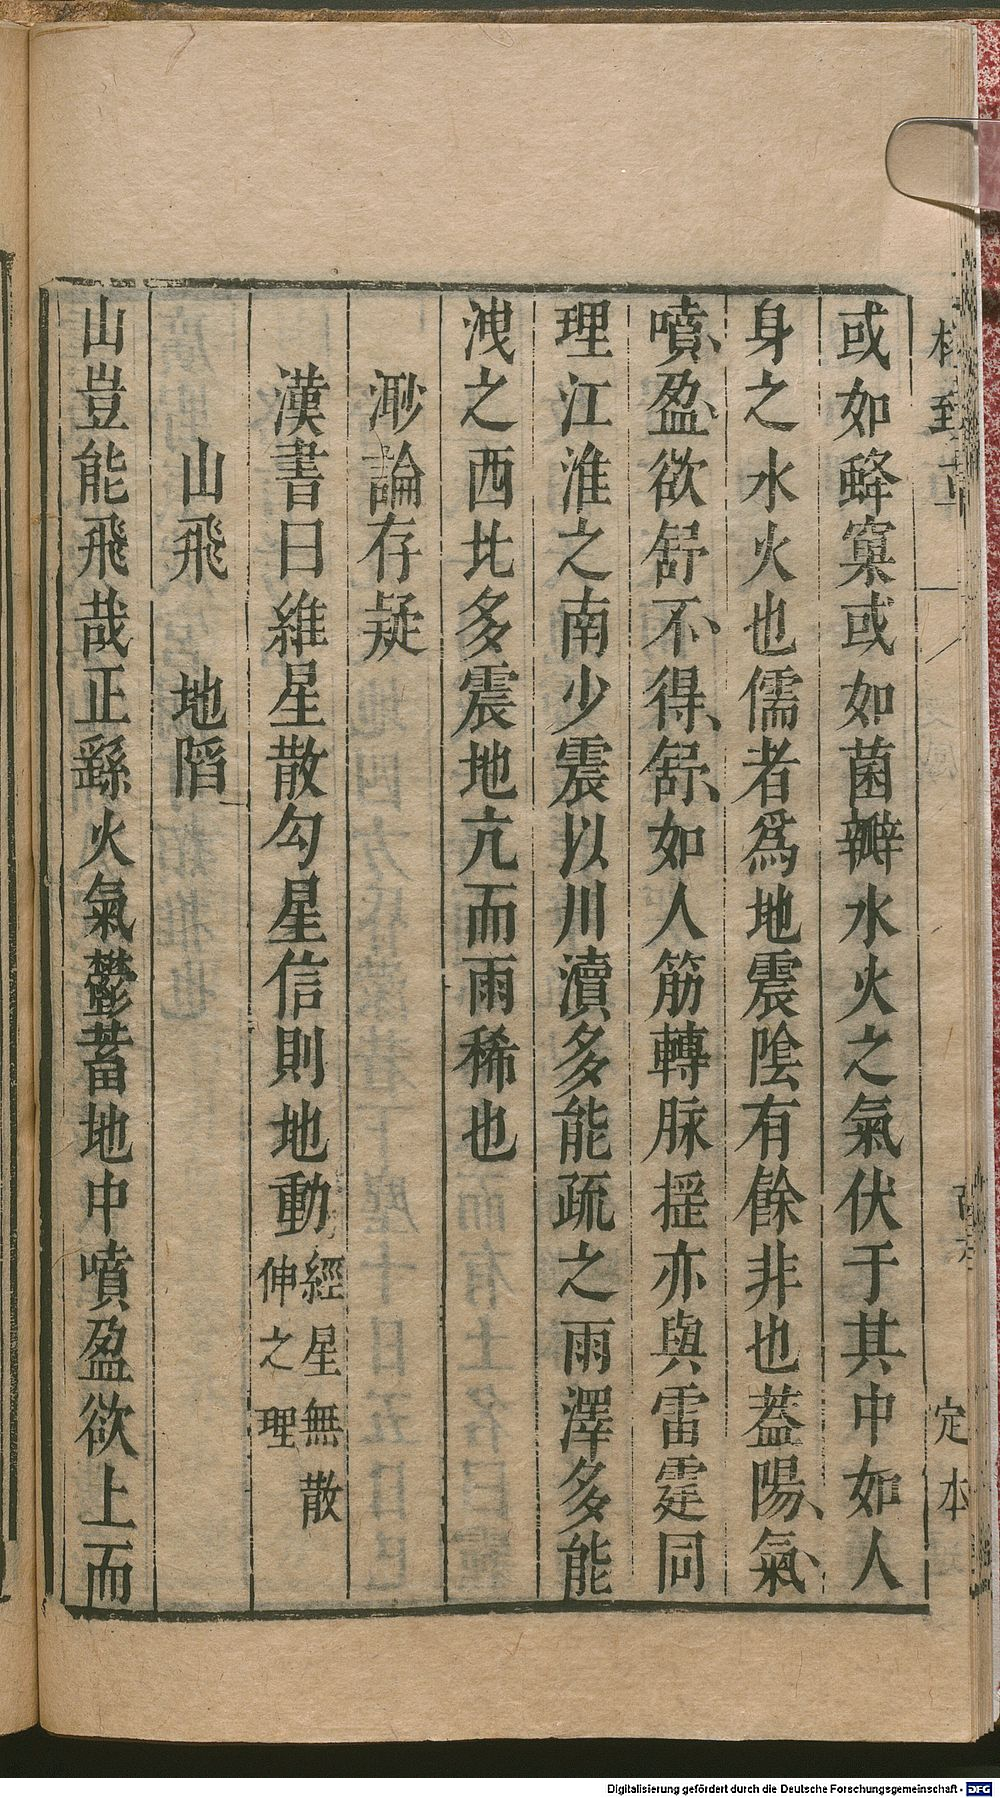 或如蜂窠或如菌瓣水火之氣伏于其中如人
身之水火也儒者爲地震陰有餘非也葢陽氣
噴盈欲舒不得舒如人筋轉脉搖亦與雷霆同
理江淮之南少震以川瀆多能疏之雨澤多能
洩之西北多震地亢而雨稀也
渺論存疑
漢書曰維星散勾星信則地動經星無散
伸之理
山飛 地陷
山豈能飛哉正繇火氣鬱蓄地中噴盈欲上而
定本
Digitalisierung gefördert durch die Deutsche Forschungsgemeinschaft - DFG